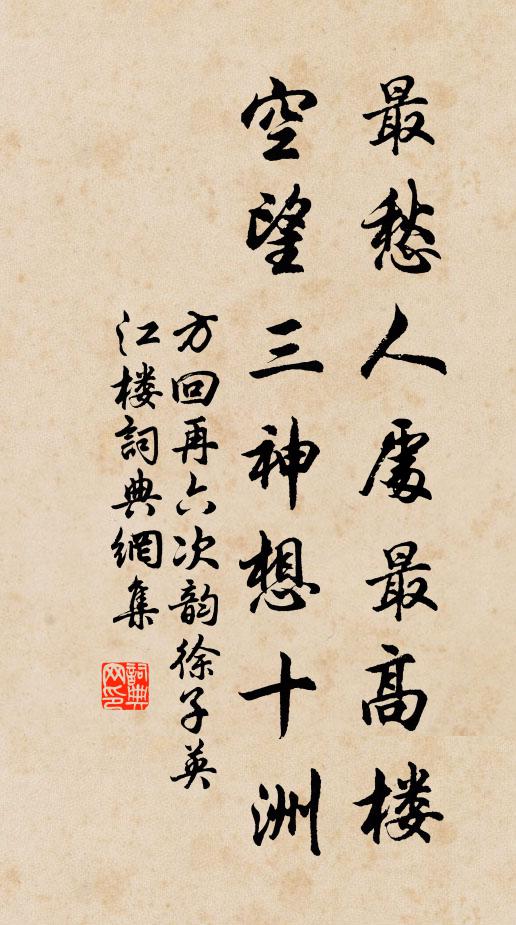 最愁人處最高楼
空望三神想十洲
方回再六次韵徐子英
江楼詞典網集
詞典网印